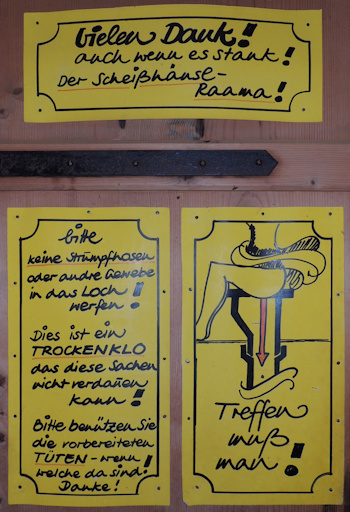 vielen Dank!
auch wenn es stank!
Der Scheißhäusl-
Raama!
bitte
keine Strumpfhosen
oder andre Gewebe
in das LOCH
werfen!
Dies ist ein
TROCKENKLO
das diese Sachen
nicht verdauen
kann!
Bitte benützen Sie
die vorbereiteten
TÜTEN - wenn
welche da sind!
Danke!
Treffen
muß
man!